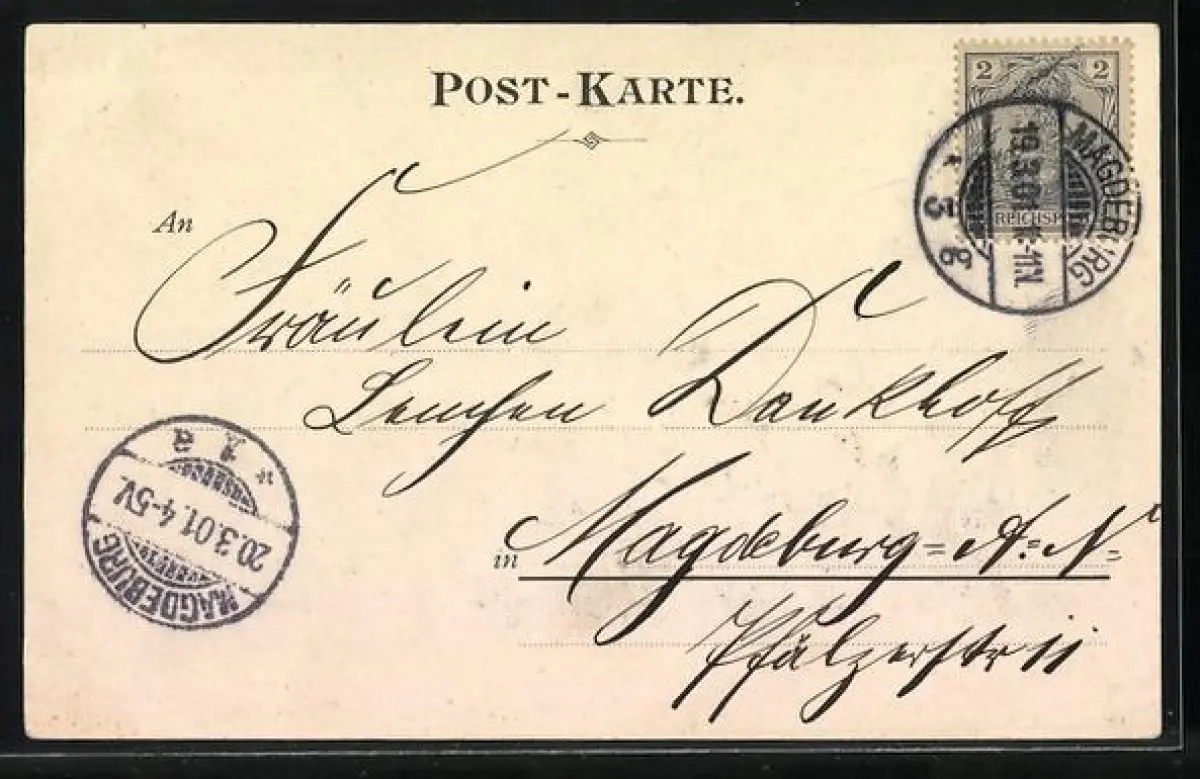 POST-KARTE.
2 2
REICHSP
MAGDEBURG
19.3.01. -11N.
* 3 g
An
Fräulein
Lenchen Dankhoff
in Magdeburg=A.=N=
Pfälzerstr 11
* 1 a
20.3.01. 4-5V.
MAGDEBURG